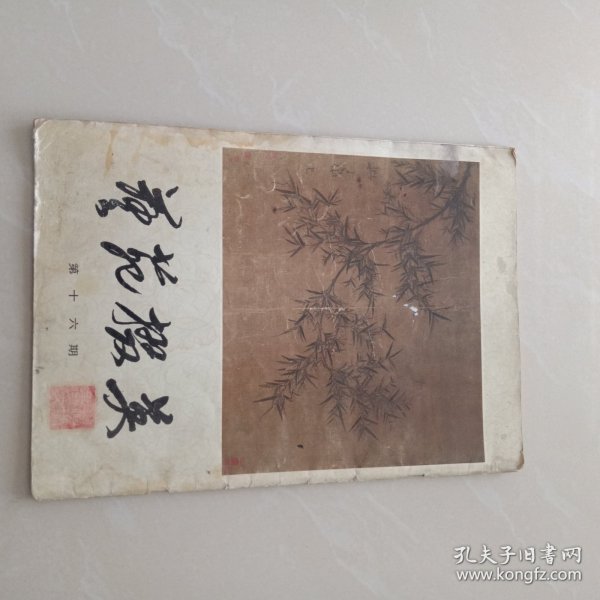 艺苑掇英
第十六期
孔夫子旧书网
www.kongfz.com